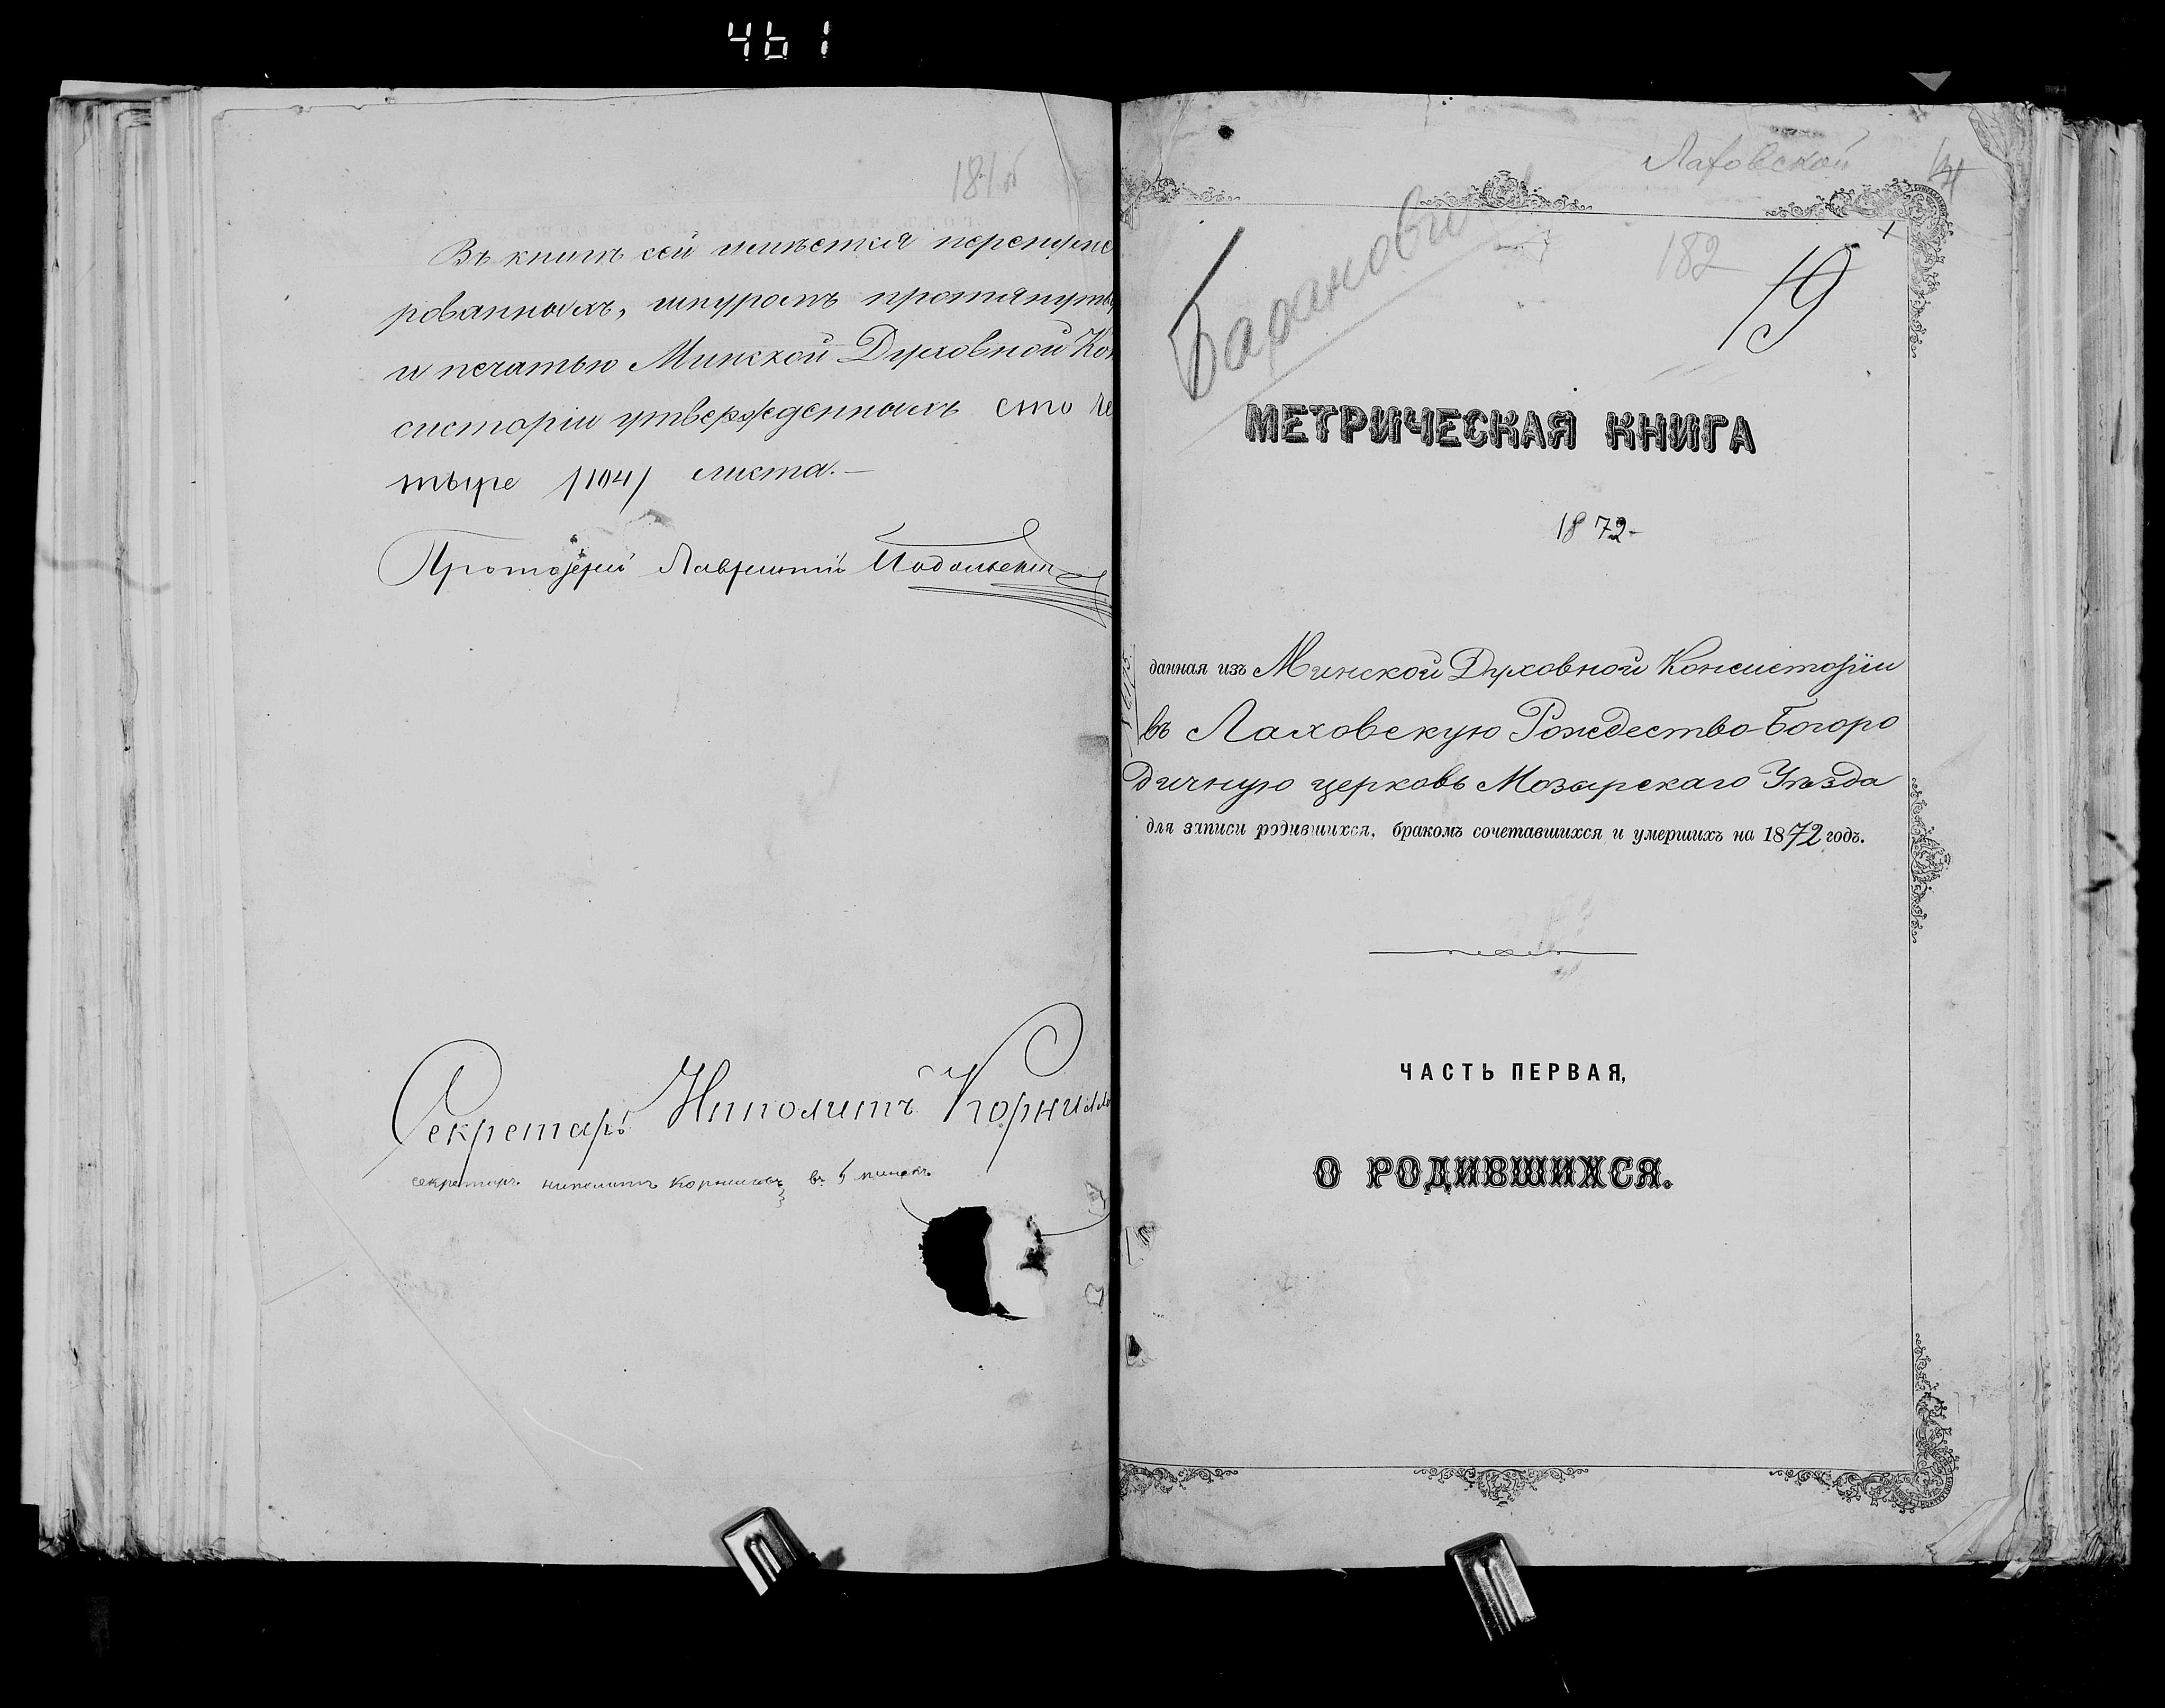 461
181б
Въ книгѣ сей имѣется перенуме
рованныхъ, шнуромъ протянуты
и печатью Минской Духовной Кон
систоріи утвержденныхъ сто че
тыре /104/ листа.—
Протоіерей Лаврентій Подольскій
Секретарь Ипполитъ Корнило
секретарь ипполитъ Корниловъ въ
Лаховской
182
19
МЕТРИЧЕСКАЯ КНИГА
1872
данная изъ Минской Духовной Консисторіи
въ Лаховскую Рождество-Богоро
дичную церковь Мозырскаго Уѣзда
для записи родившихся, бракомъ сочетавшихся и умершихъ на 1872 годъ.
ЧАСТЬ ПЕРВАЯ,
О РОДИВШИХСЯ.